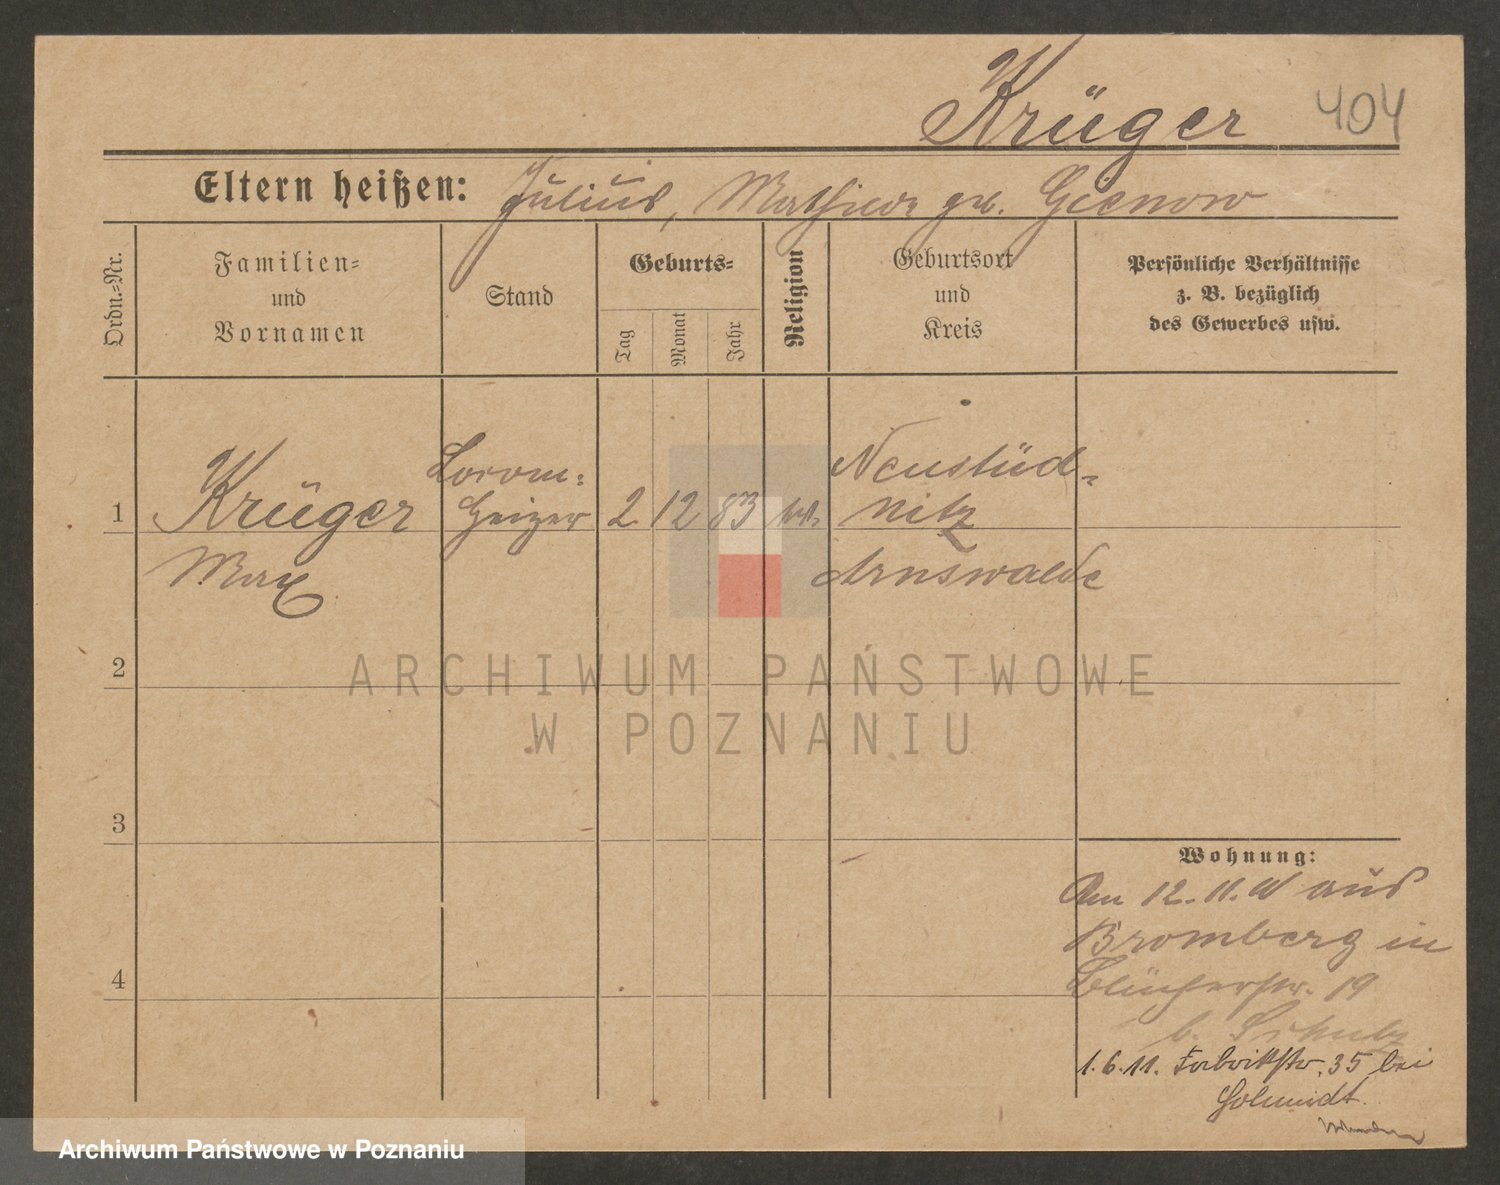 Krüger 404
Eltern heißen: Julius, Mathilde geb. Gienow
Ordn.=Nr.
Familien=
und
Vornamen
Stand
Geburts=
Tag
Monat
Jahr
Religion
Geburtsort
und
Kreis
Persönliche Verhältnisse
z. B. bezüglich
des Gewerbes usw.
1 Krüger
Max
Heizer
2 12 83
Neustüd=
nitz
Arnswalde
2
3
4
ARCHIWUM PAŃSTWOWE
W POZNANIU
Wohnung:
Am 12. 11. aus
Bromberg in
Blücherstr. 19
b. Schulz
1. 6. 11. Fabrikstr. 35 bei
Schmidt.
Archiwum Państwowe w Poznaniu